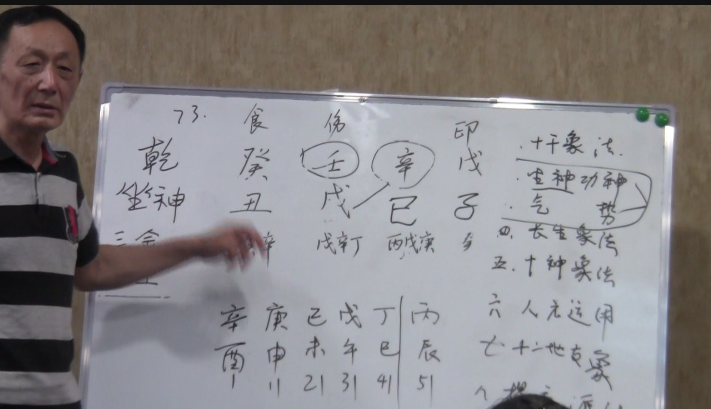 73. 食 伤 印
乾 癸 壬 辛 戊
坐神 丑 戌 巳 子
辛 戊辛丁 丙戊庚
辛 庚 己 戊 丁 丙
酉 申 未 午 巳 辰
1 11 21 31 41 51
.十干象法.
.坐神功神
.气 势
四.长生象法
五.十神象法
六 人元运用
七 十二地支象